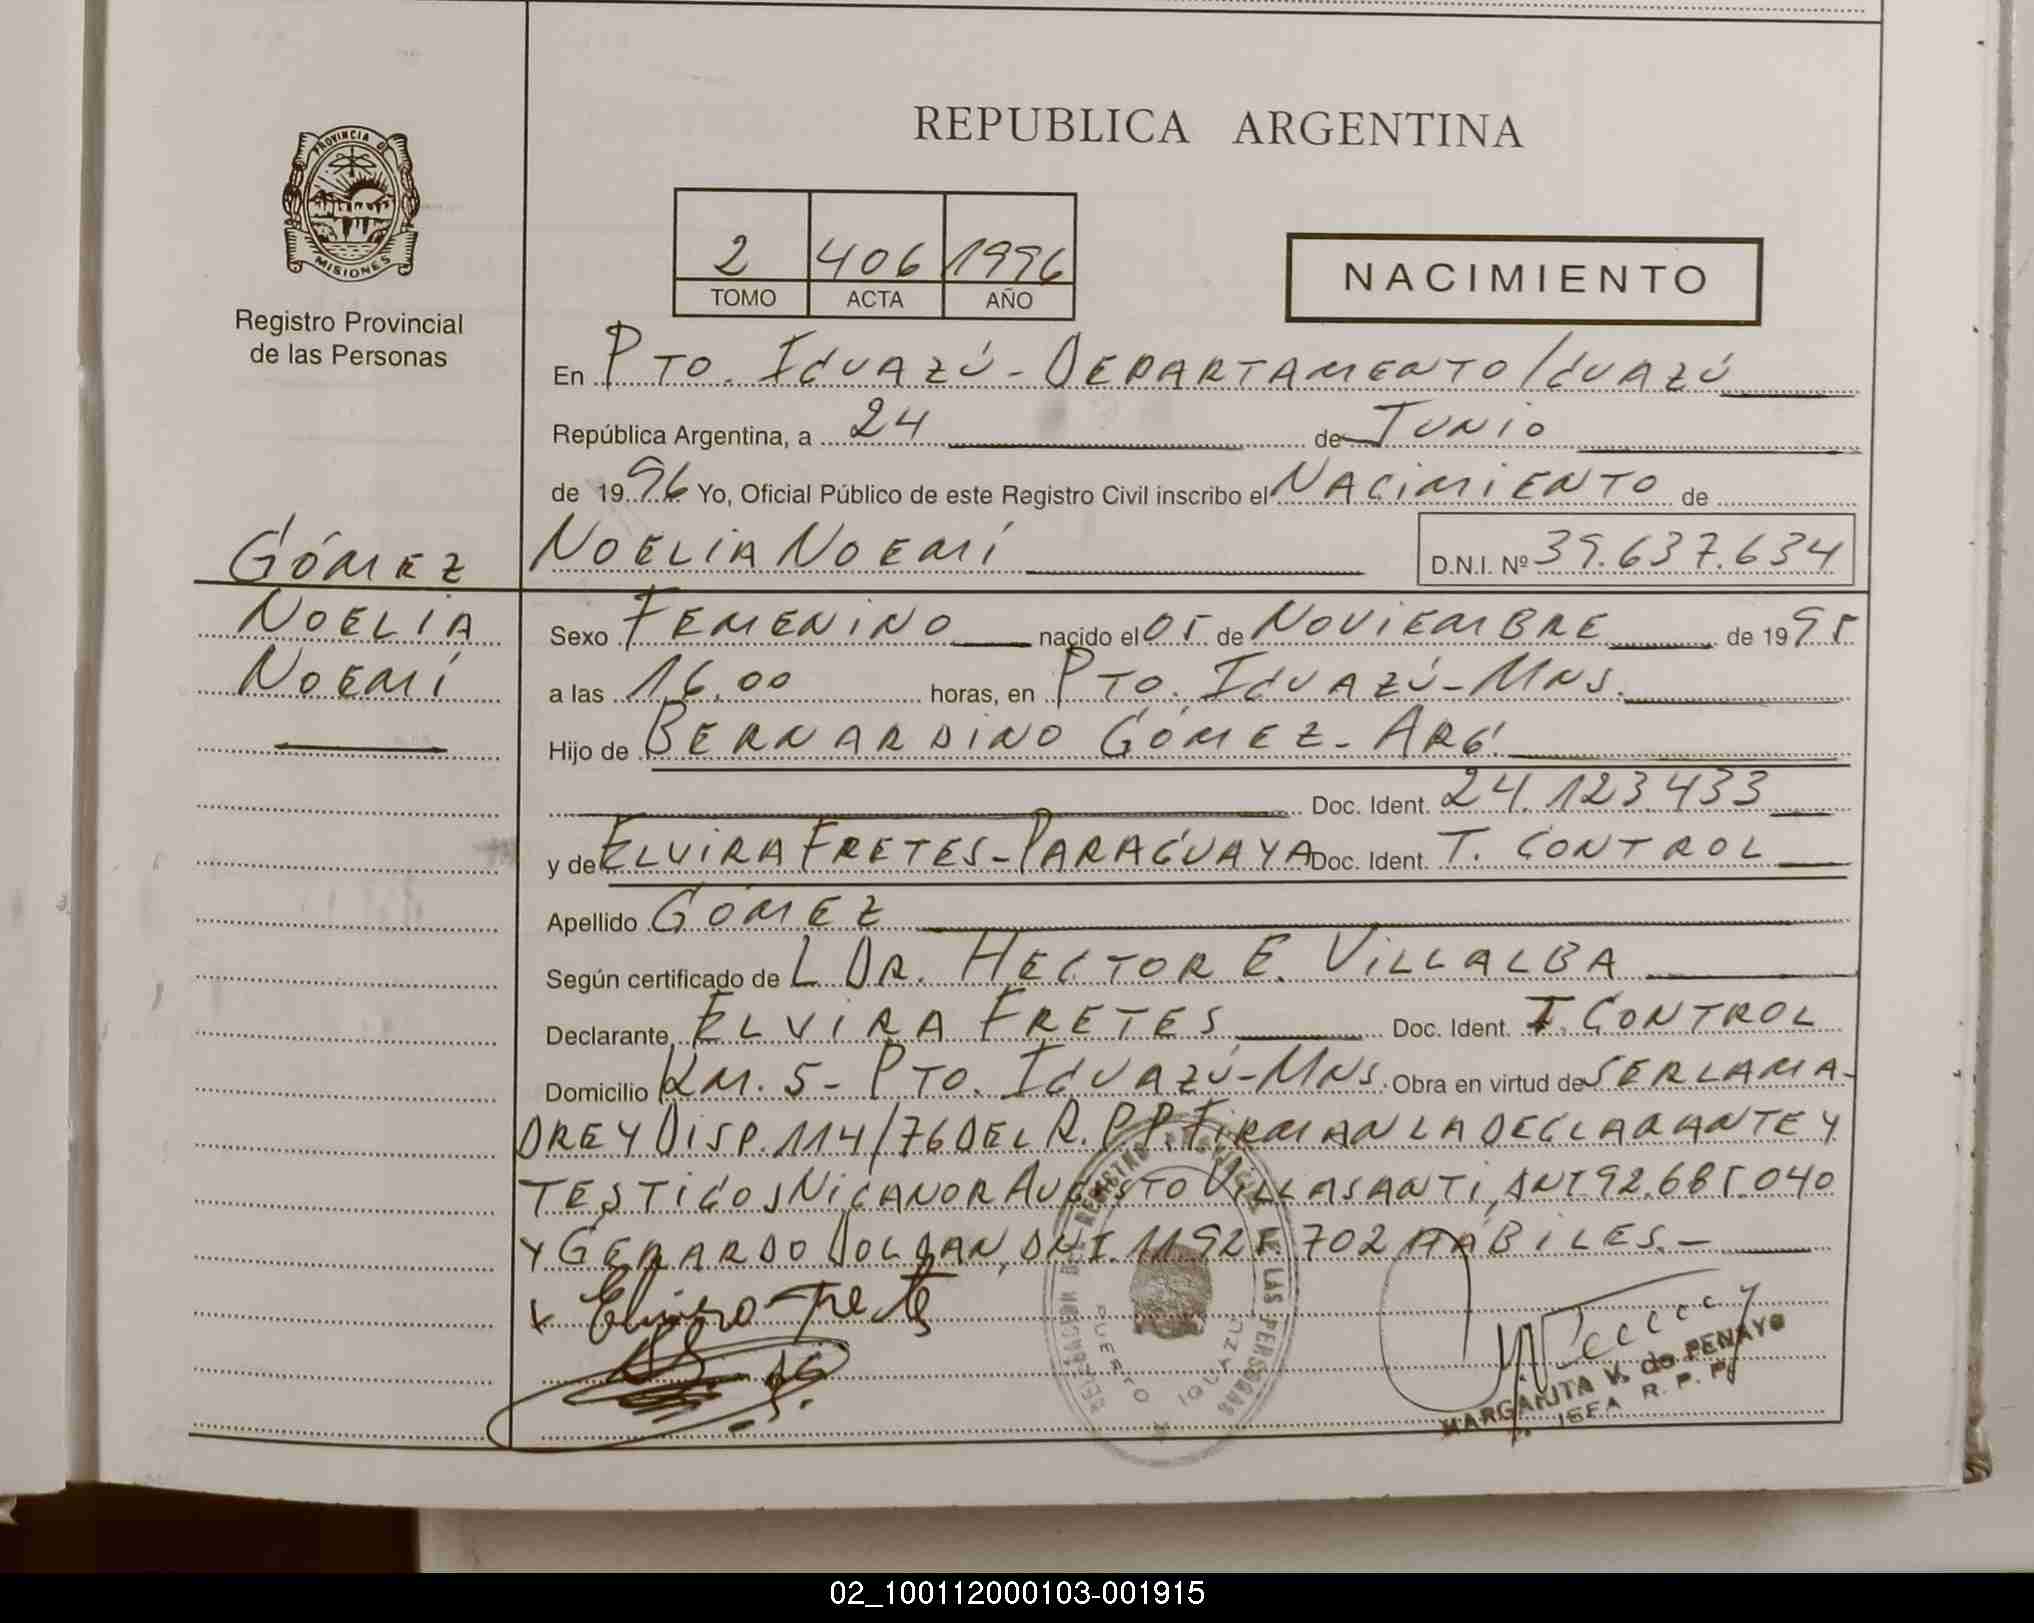 REPUBLICA ARGENTINA
PROVINCIA DE
MISIONES
Registro Provincial
de las Personas
2 406 1996
TOMO ACTA AÑO
NACIMIENTO
En PTO. IGUAZÚ - DEPARTAMENTO IGUAZÚ
República Argentina, a 24 de JUNIO
de 1996 Yo, Oficial Público de este Registro Civil inscribo el NACIMIENTO de
GÓMEZ
NOELIA
NOEMÍ
NOELIA NOEMÍ D.N.I. Nº 39.637.634
Sexo FEMENINO nacido el 05 de NOVIEMBRE de 1995
a las 16.00 horas, en PTO. IGUAZÚ - MNS.
Hijo de BERNARDINO GÓMEZ - ARG.
Doc. Ident. 24.123.433
y de ELVIRA FRETES - PARAGUAYA Doc. Ident. T. CONTROL
Apellido GÓMEZ
Según certificado de L DR. HECTOR E. VILLALBA
Declarante ELVIRA FRETES Doc. Ident. T. CONTROL
Domicilio KM. 5 - PTO. IGUAZÚ - MNS. Obra en virtud de SER LA MA-
DRE Y DISP. 114/76 DEL R.P.P. FIRMAN LA DECLARANTE Y
TESTIGOS NICANOR AUGUSTO VILLASANTI, DNI 92.685.040
Y GERARDO DOLDAN, DNI. 11.925.702 HÁBILES. -
x Elvira Frete
DELEGACION DEL REGISTRO PROVINCIAL DE LAS PERSONAS
PUERTO IGUAZU
MARGARITA V. de PENAYO
JEFA R. P. P.
02_100112000103-001915